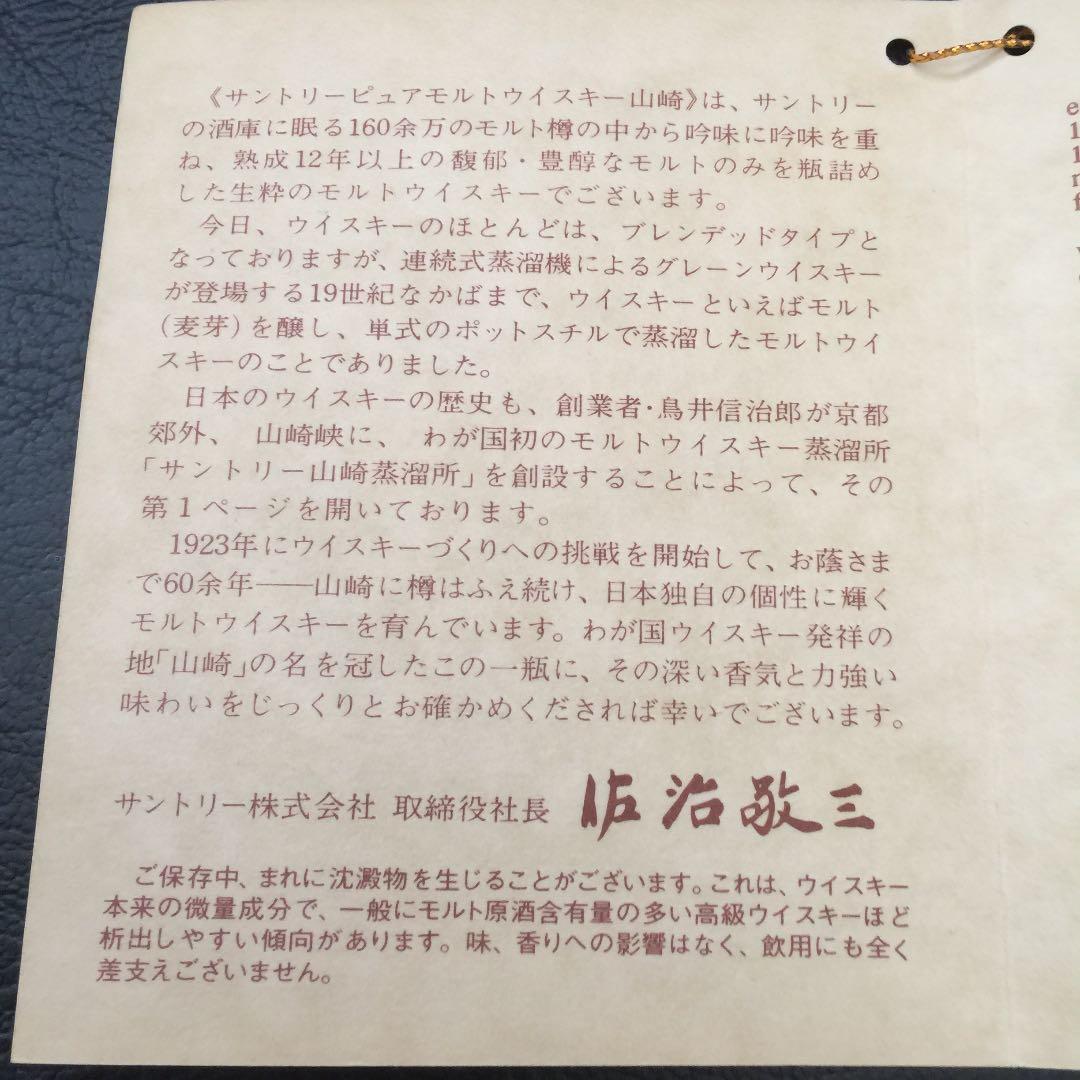 《サントリーピュアモルトウイスキー山崎》は、サントリー
の酒庫に眠る160余万のモルト樽の中から吟味に吟味を重
ね、熟成12年以上の馥郁・豊醇なモルトのみを瓶詰め
した生粋のモルトウイスキーでございます。
今日、ウイスキーのほとんどは、ブレンデッドタイプと
なっておりますが、連続式蒸溜機によるグレーンウイスキー
が登場する19世紀なかばまで、ウイスキーといえばモルト
(麦芽)を醸し、単式のポットスチルで蒸溜したモルトウイ
スキーのことでありました。
日本のウイスキーの歴史も、創業者・鳥井信治郎が京都
郊外、山崎峡に、わが国初のモルトウイスキー蒸溜所
「サントリー山崎蒸溜所」を創設することによって、その
第1ページを開いております。
1923年にウイスキーづくりへの挑戦を開始して、お蔭さま
で60余年——山崎に樽はふえ続け、日本独自の個性に輝く
モルトウイスキーを育んでいます。わが国ウイスキー発祥の
地「山崎」の名を冠したこの一瓶に、その深い香気と力強い
味わいをじっくりとお確かめくだされば幸いでございます。
サントリー株式会社 取締役社長 佐治敬三
ご保存中、まれに沈澱物を生じることがございます。これは、ウイスキー
本来の微量成分で、一般にモルト原酒含有量の多い高級ウイスキーほど
析出しやすい傾向があります。味、香りへの影響はなく、飲用にも全く
差支えございません。